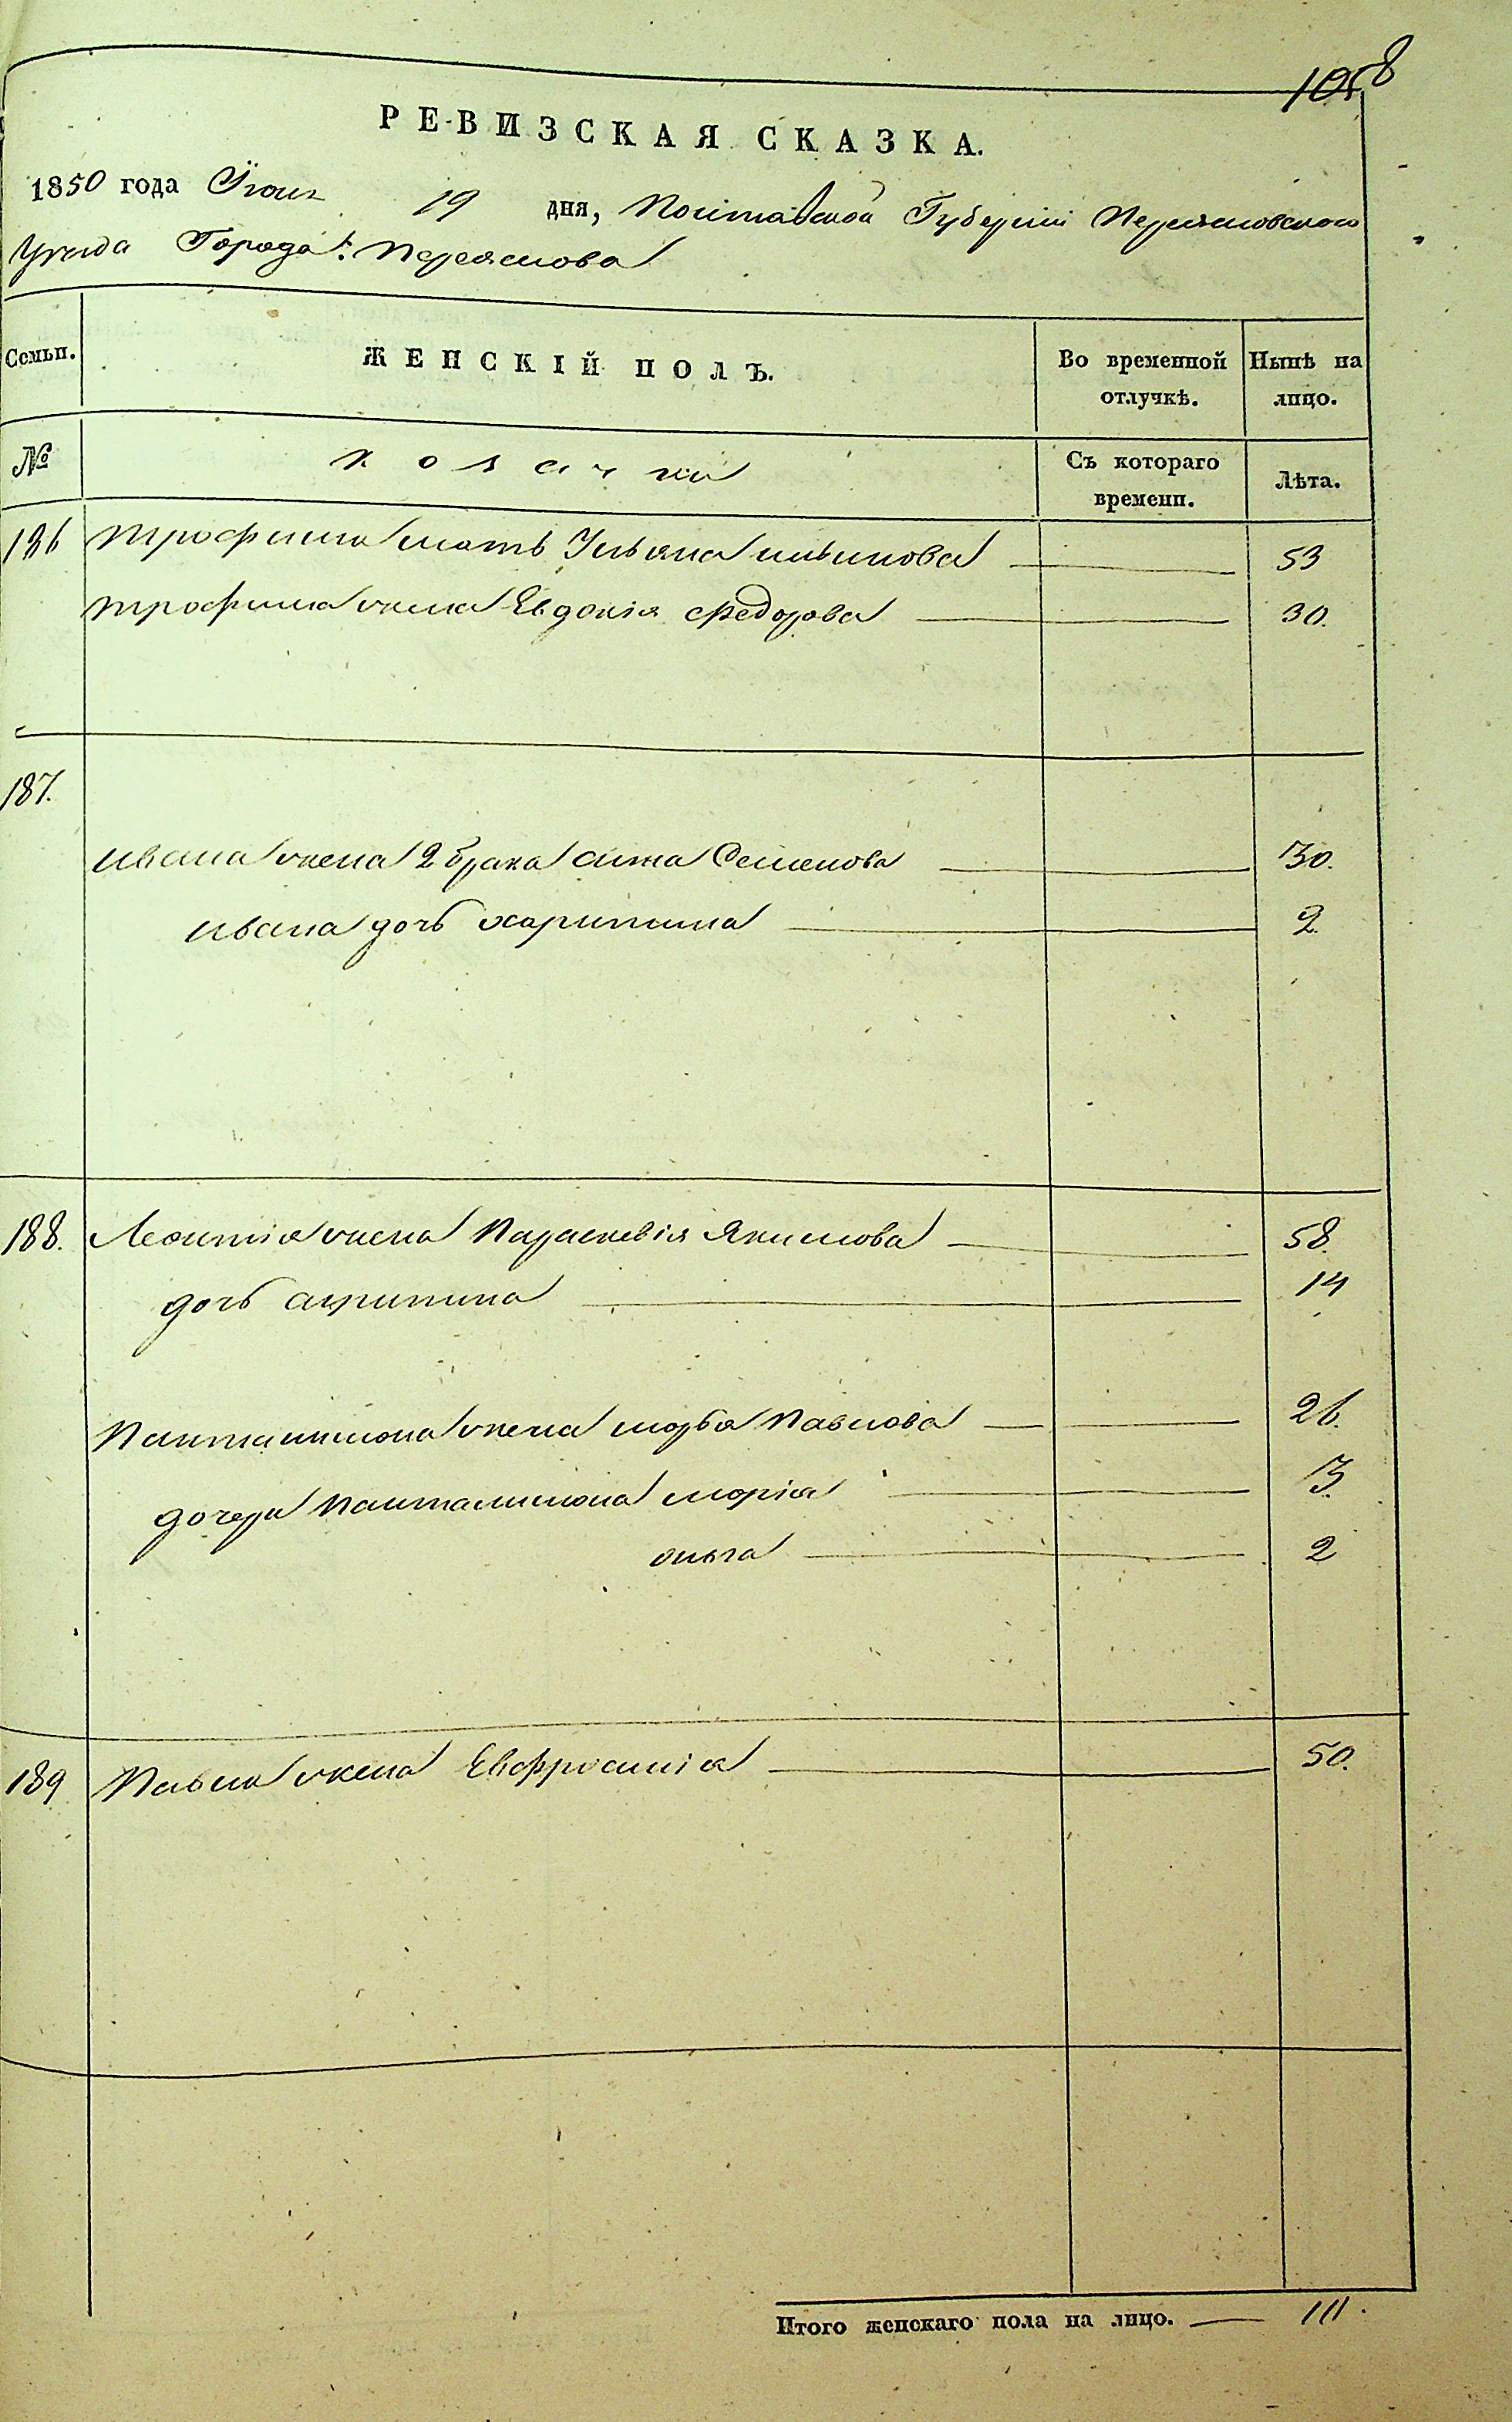 1058
РЕВИЗСКАЯ СКАЗКА.
1850 года Іюня 19 дня, Полтавской Губерніи Переяславского
Уезда Города Переяслова
Семьи. ЖЕНСКІЙ ПОЛЪ. Во временной отлучкѣ. Нынѣ на лицо.
№ козачки Съ котораго времени. Лѣта.
186 Трофима мать Ульяна ильинова 53
трофима жена Евдокія Федорова 30.
187.
ивана жена 2 брака анна Семенова 30.
ивана дочь 2
188. Леонтія жена Параскевія Якимова 58.
дочь агрипина 14
Панталимона жена марья Павлова 26.
дочери Панталимона марія 3.
ольга 2
189 Павла жена Евфросинія 50.
Итого женскаго пола на лицо. 111.